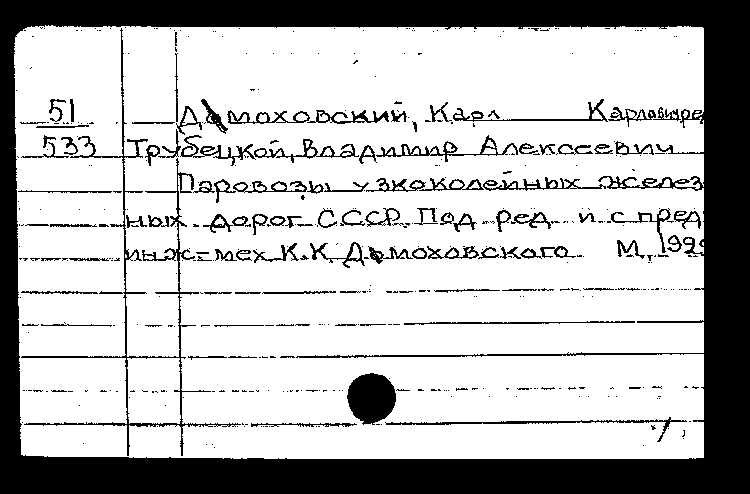 51
533
Домоховский, Карл Карлович ре
Трубецкой, Владимир Алексеевич
Паровозы узкоколейных желез
ных дорог СССР. Под ред и с пред
инж-мех К.К. Домоховского М, 1929